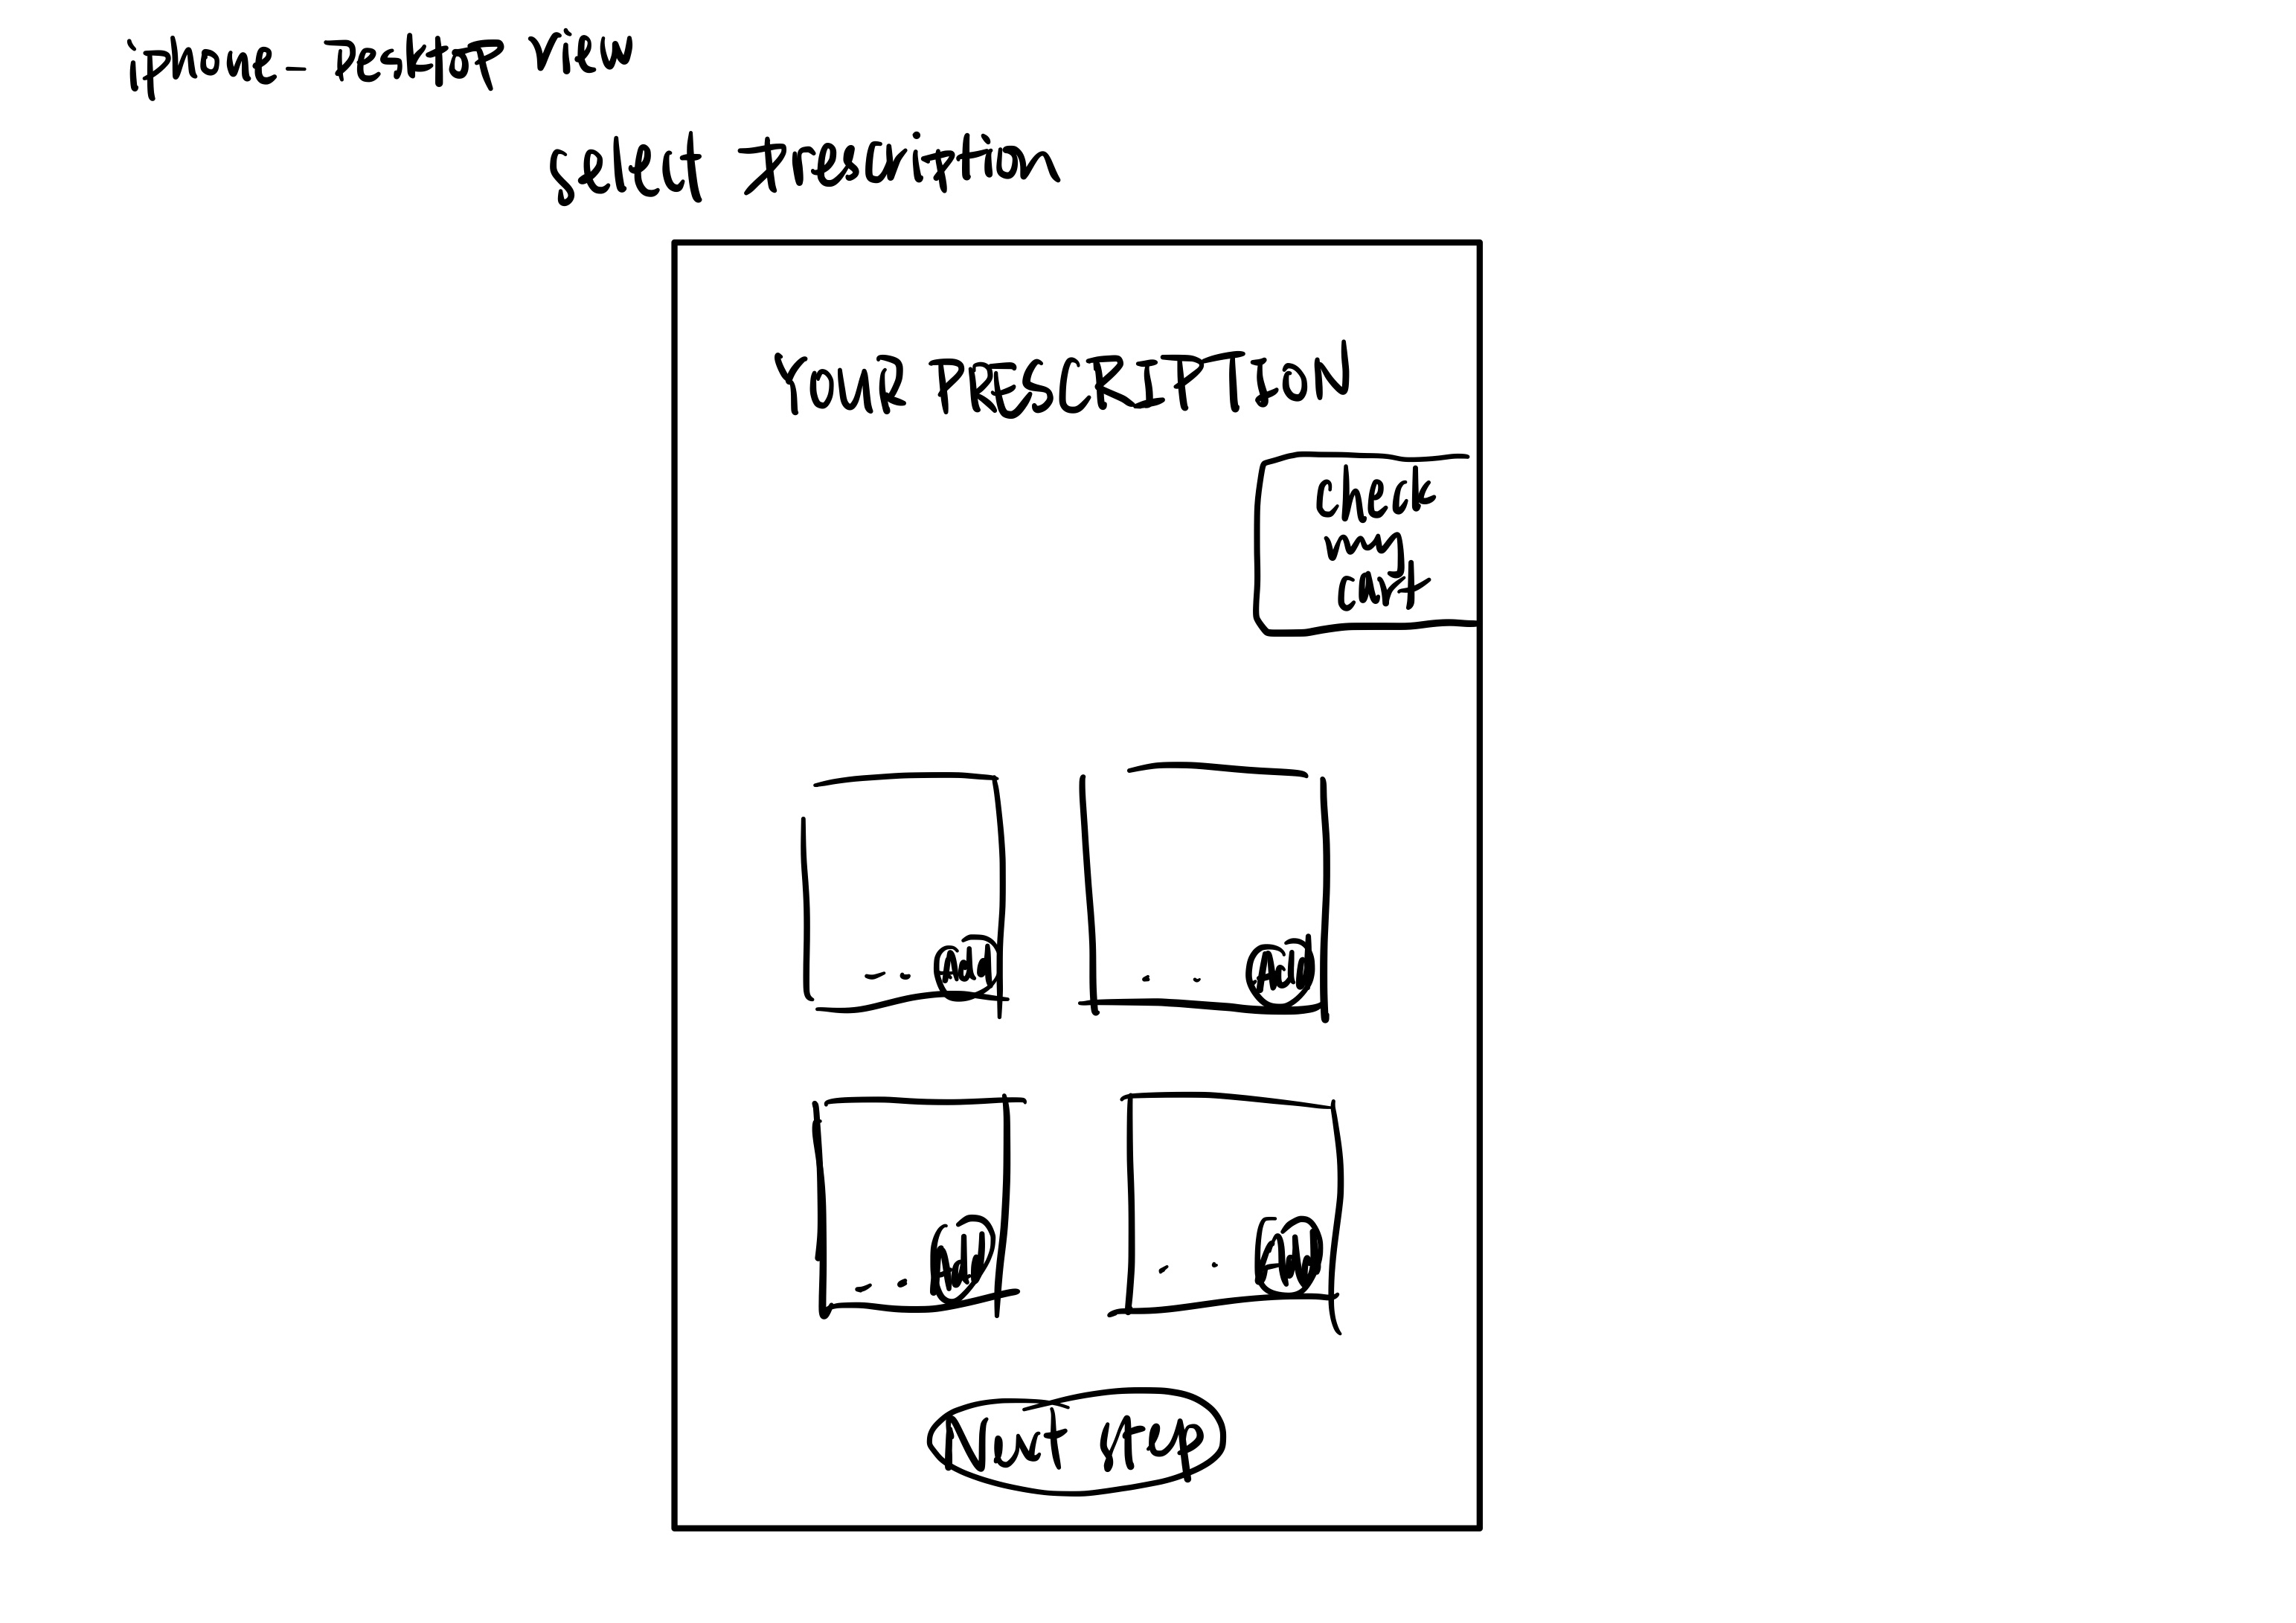 iphone - Desktop view
select Prescription
YOUR PRESCRIPTION
check
my
cart
Add
Add
Add
Add
Next step